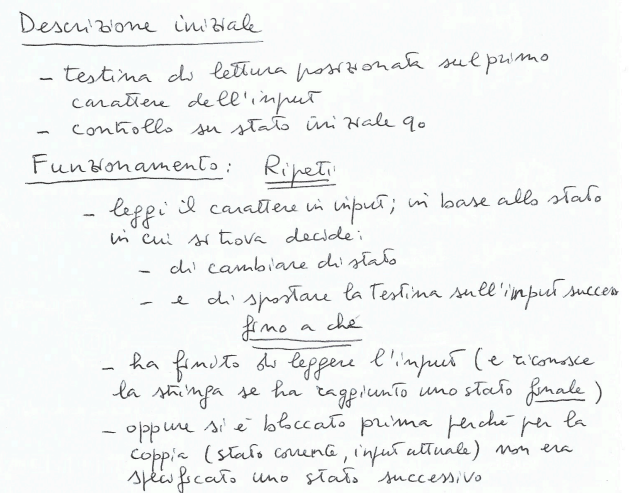 Descrizione iniziale
- testina di lettura posizionata sul primo
carattere dell'input
- controllo su stato iniziale q0
Funzionamento: Ripeti
- leggi il carattere in input; in base allo stato
in cui si trova decide:
- di cambiare di stato
- e di spostare la testina sull'input success
fino a che
- ha finito di leggere l'input (e riconosce
la stringa se ha raggiunto uno stato finale)
- oppure si è bloccato prima perché per la
coppia (stato corrente, input attuale) non era
specificato uno stato successivo